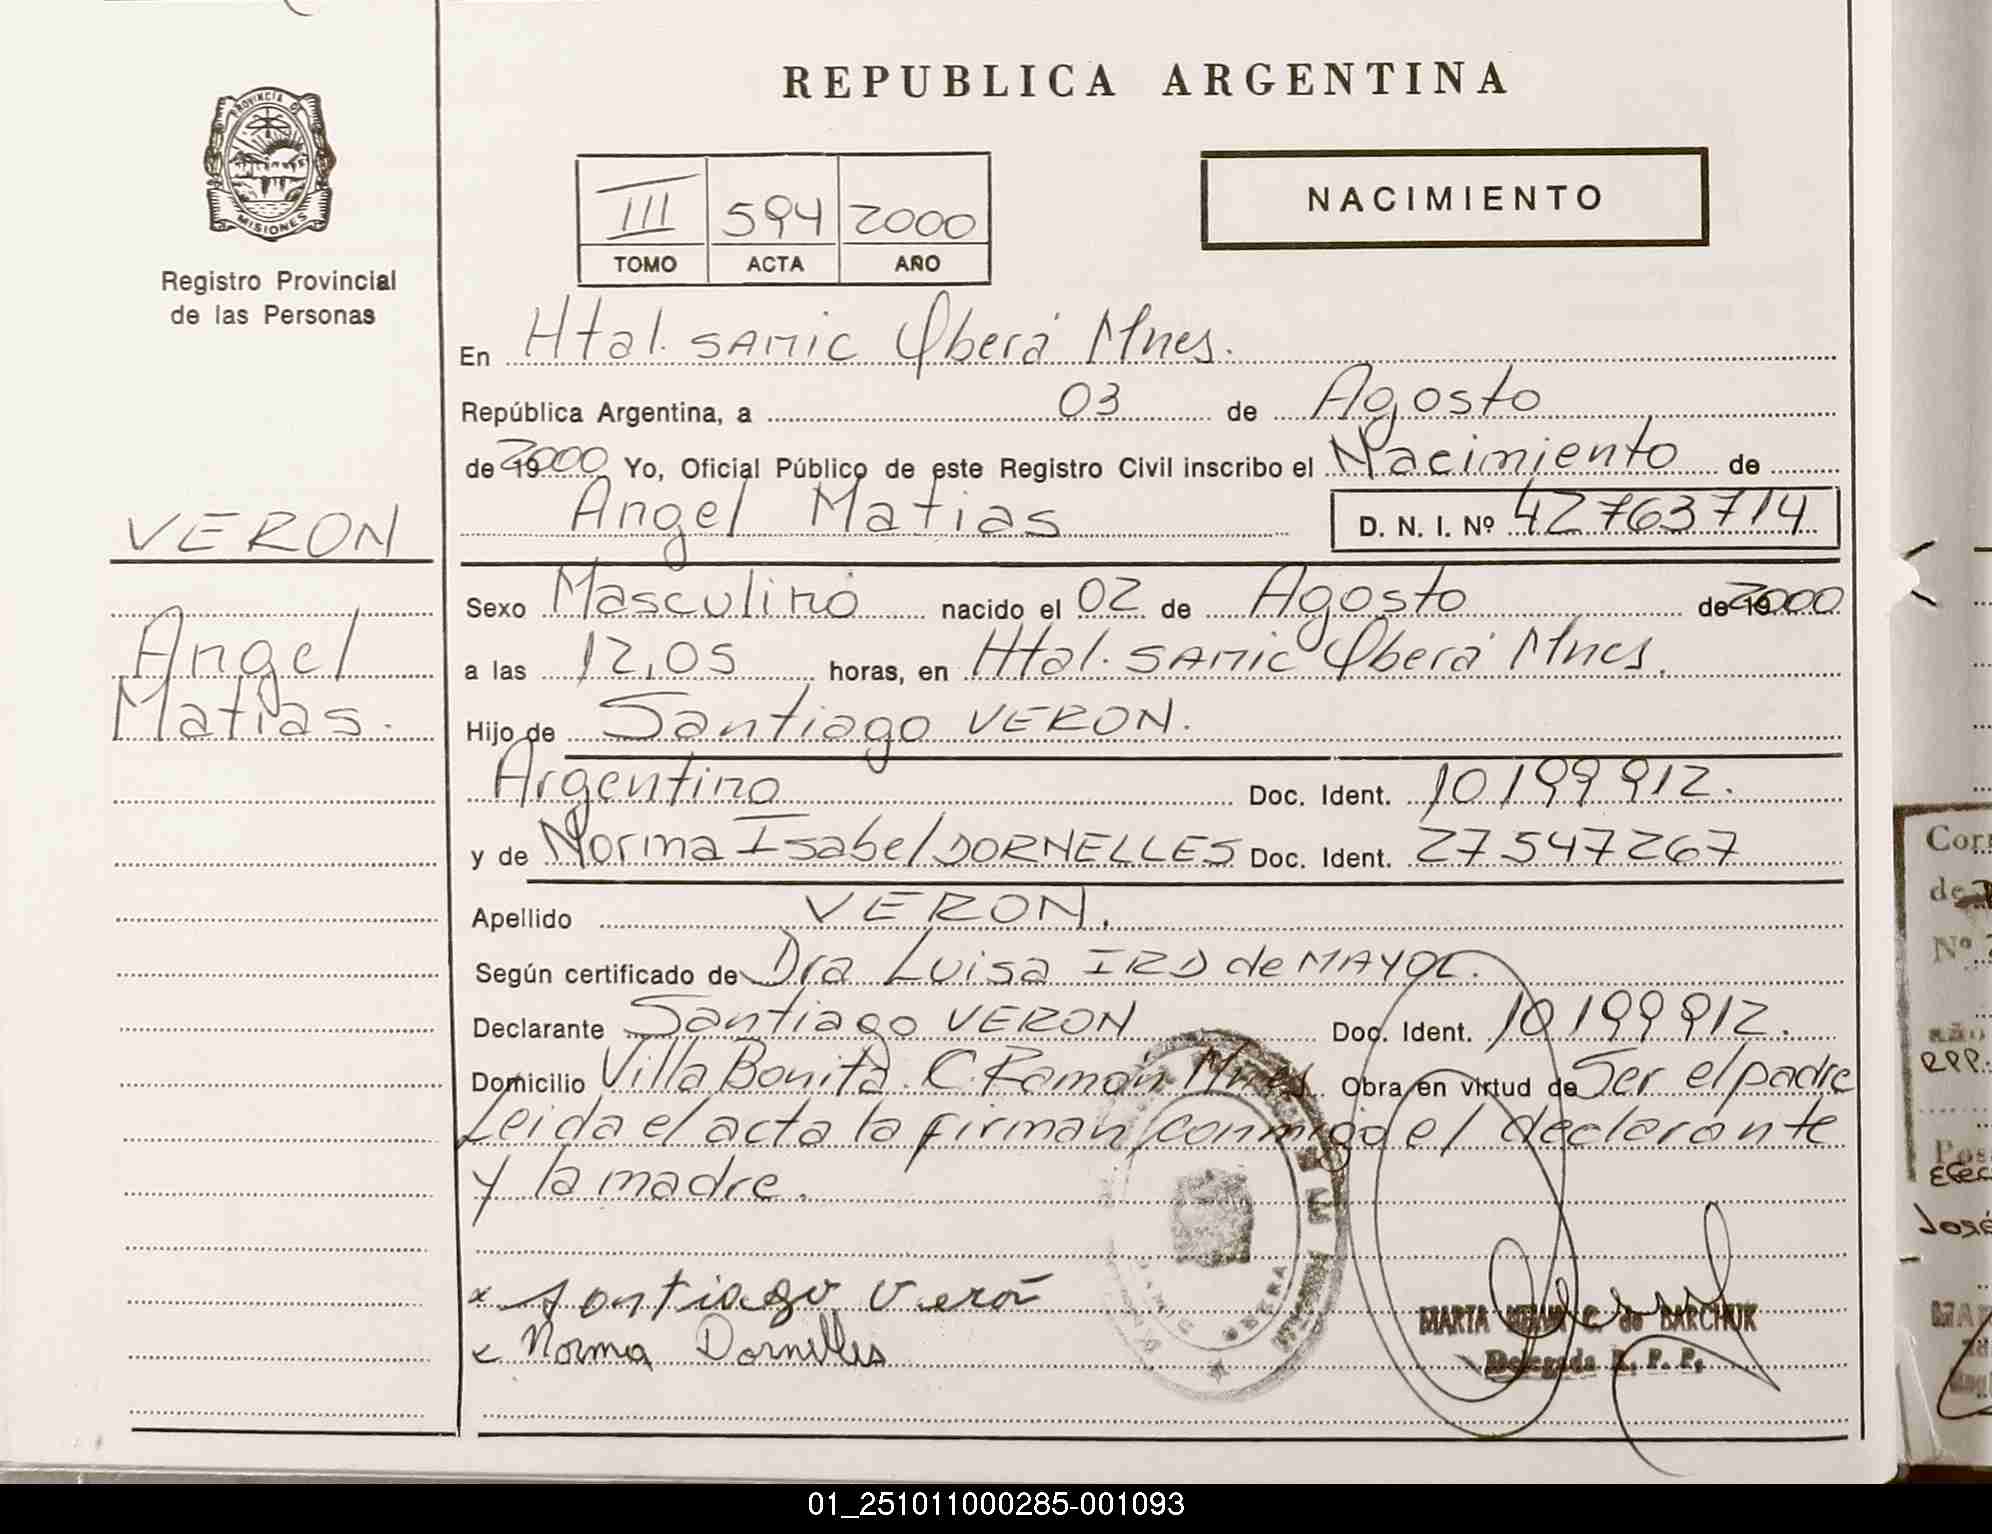 PROVINCIA DE
MISIONES
Registro Provincial
de las Personas
VERON
Angel
Matias.
REPUBLICA ARGENTINA
III 594 2000
TOMO ACTA AÑO
NACIMIENTO
En Htal. SAMIC Oberá Mnes.
República Argentina, a 03 de Agosto
de 19 2000 Yo, Oficial Público de este Registro Civil inscribo el Nacimiento de
Angel Matias D. N. I. Nº 42763714
Sexo Masculino nacido el 02 de Agosto de 19 2000
a las 12,05 horas, en Htal. SAMIC Oberá Mnes.
Hijo de Santiago VERON.
Argentino Doc. Ident. 10199912.
y de Norma Isabel DORNELLES Doc. Ident. 27547267
Apellido VERON.
Según certificado de Dra Luisa IRD de MAYOL.
Declarante Santiago VERON Doc. Ident. 10199912.
Domicilio Villa Bonita. C. Ramón Mnes Obra en virtud de Ser el padre
Leida el acta la firman conmigo el declarante
y la madre.
x Santiago Verón
x Norma Dornelles
OBERA
MARTA C. de BARCHUK
Delegada R. P. P.
Corr
de
Nº
RPP.
Pos
Efec
José
MAR
01_251011000285-001093